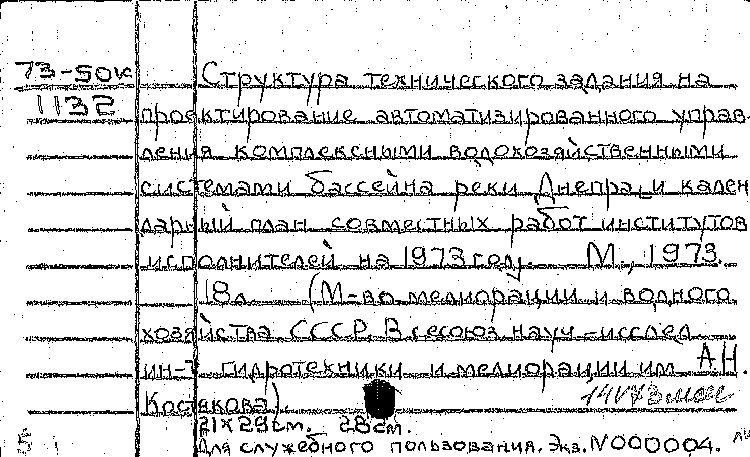 73-50к Структура технического задания на
1132 проектирование автоматизированного управ-
ления комплексными водохозяйственными
системами бассейна реки Днепра, и кален
дарный план совместных работ институтов
исполнителей на 1973 году. М., 1973.
18л. (М-во мелиорации и водного
хозяйства СССР. Всесоюз. науч-исслед.
ин-т гидротехники и мелиорации им. А.Н.
Костякова).
21х29см. 28см.
5 Для служебного пользования. Экз. N000004.